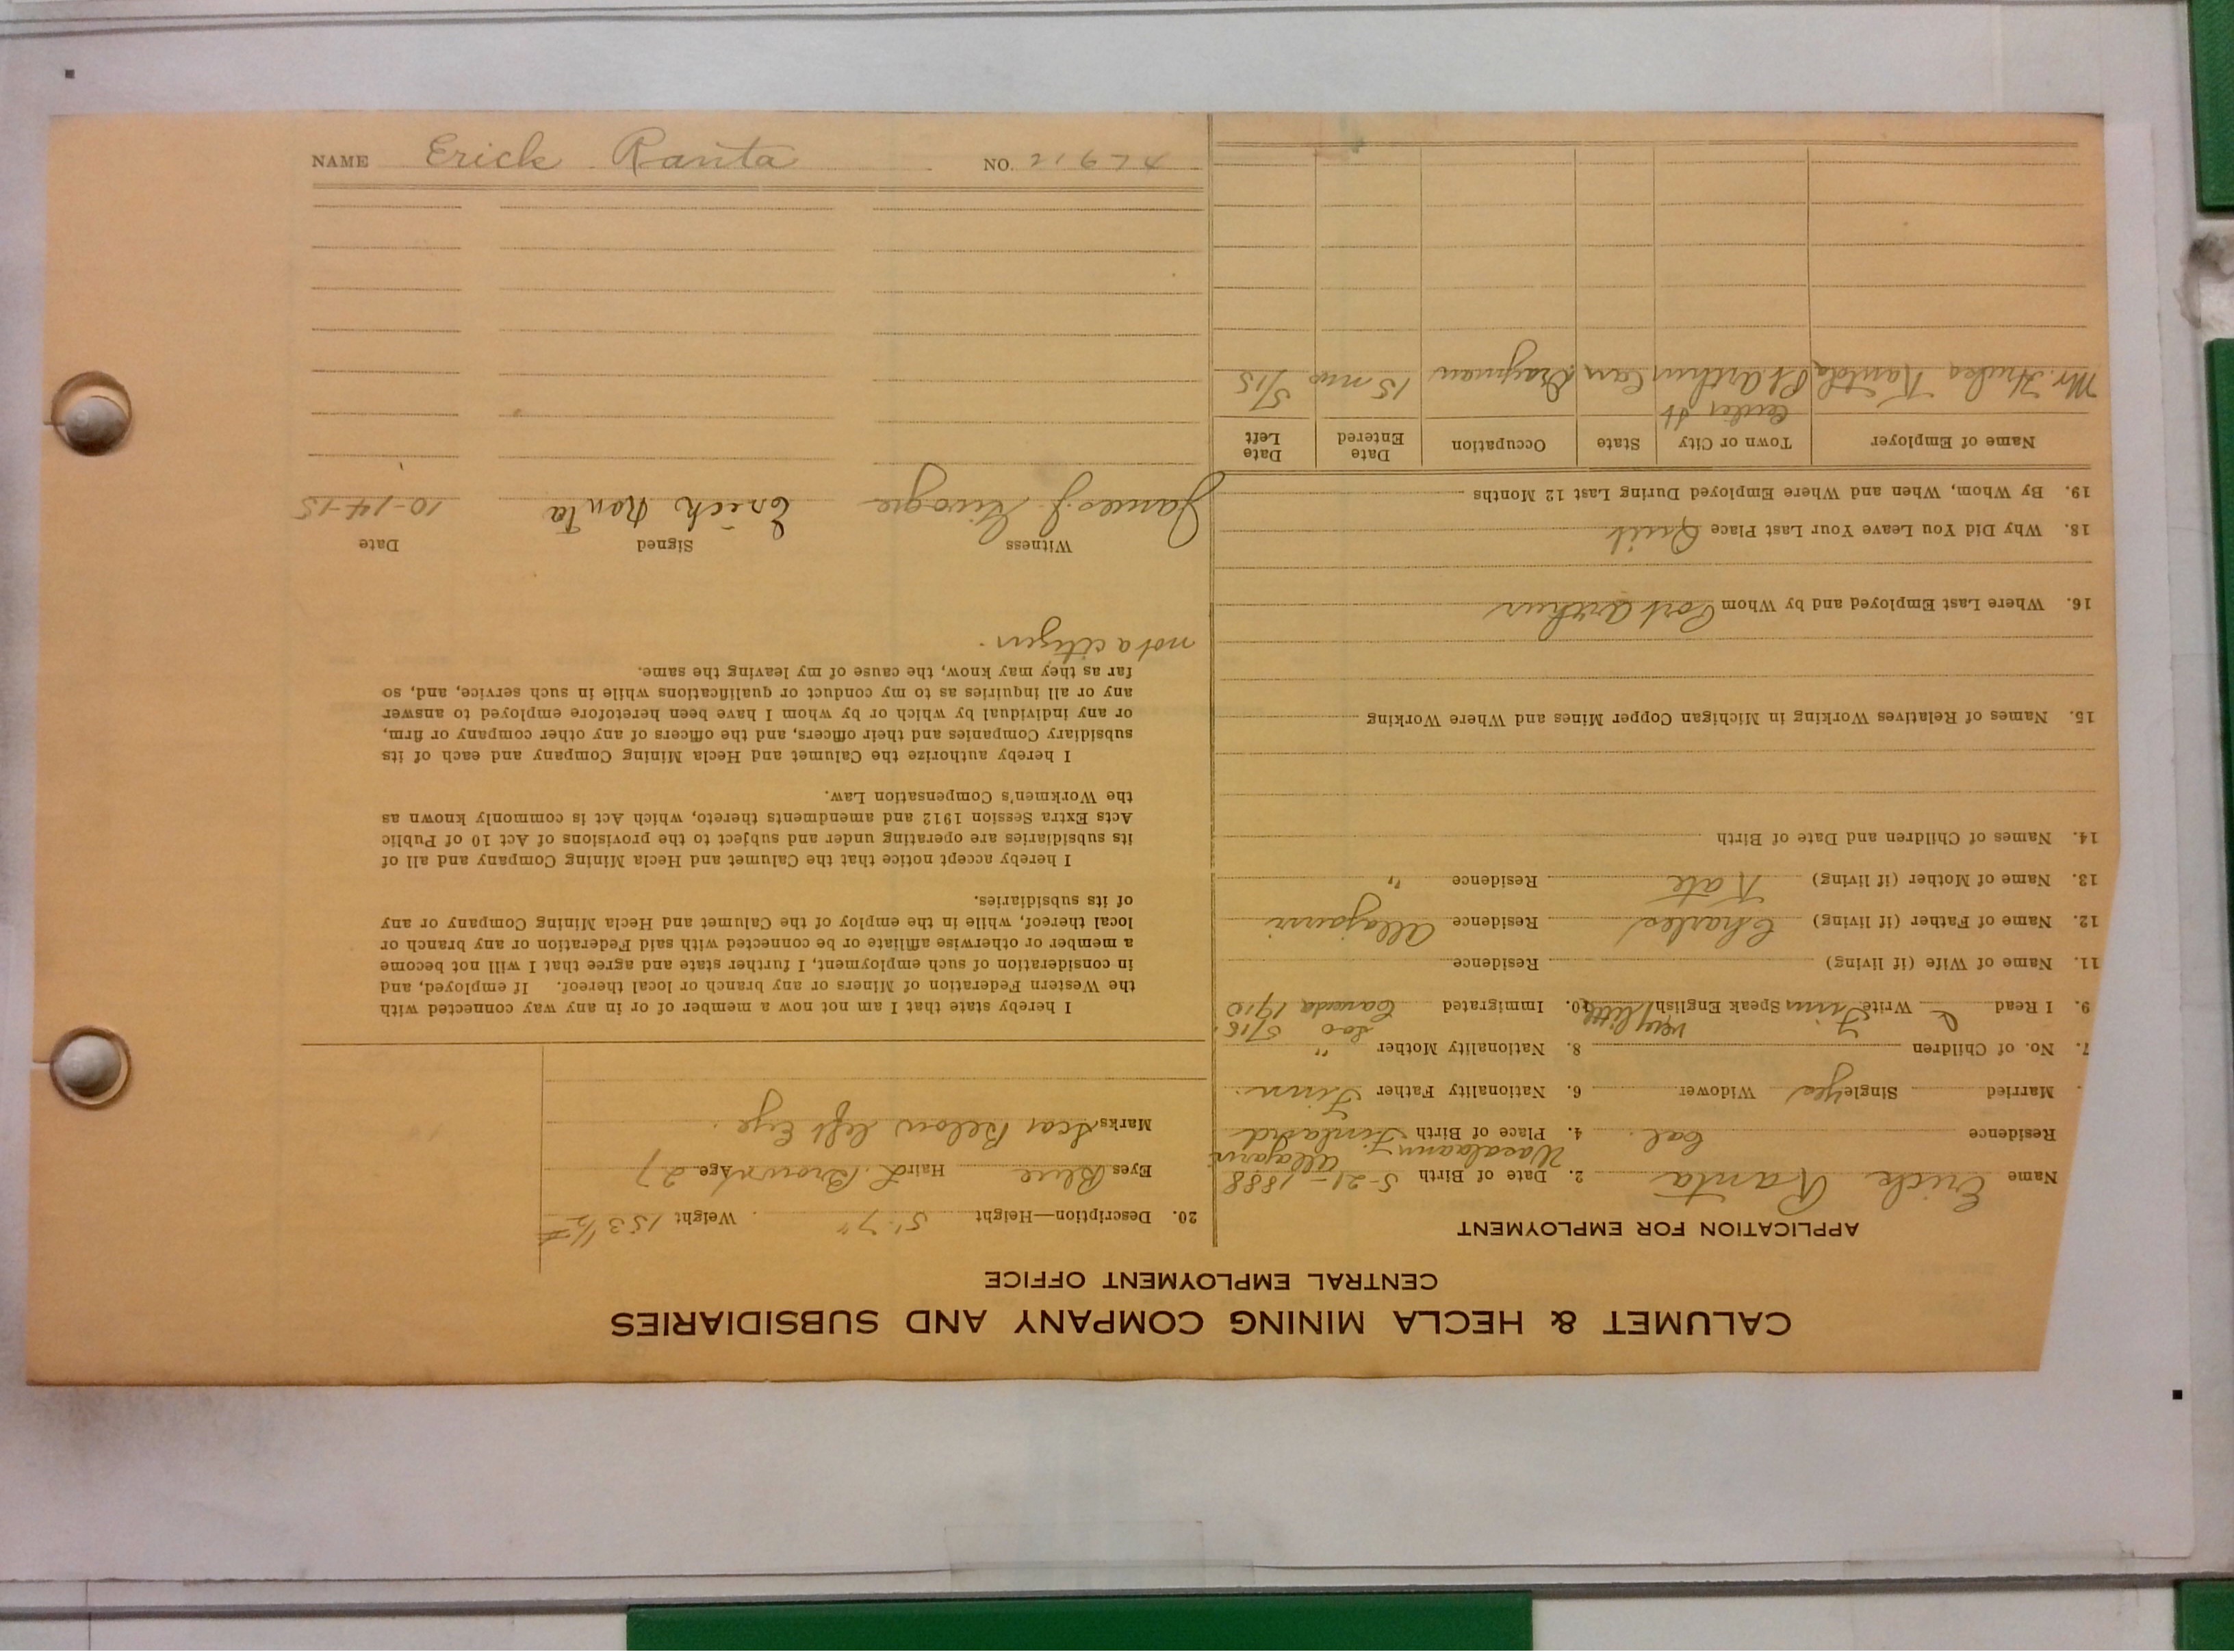 CALUMET & HECLA MINING COMPANY AND SUBSIDIARIES
CENTRAL EMPLOYMENT OFFICE
APPLICATION FOR EMPLOYMENT
Name Erick Ranta 2. Date of Birth 5-21-1888
Residence Cal. 4. Place of Birth Finland
Married Single yes Widower 6. Nationality Father Finn.
7. No. of Children 8. Nationality Mother "
very little Soo 5/15
9. I Read & Write Finn Speak English 10. Immigrated Canada 1910
11. Name of Wife (if living) Residence
12. Name of Father (if living) Charles Residence Allajarvi
13. Name of Mother (if living) Kate Residence "
14. Names of Children and Date of Birth
15. Names of Relatives Working in Michigan Copper Mines and Where Working
16. Where Last Employed and by Whom Port Arthur
18. Why Did You Leave Your Last Place Quit
19. By Whom, When and Where Employed During Last 12 Months
Name of Employer Town or City State Occupation Date Entered Date Left
Mr. Pt Arthur Can Drayman 15 mos 5/15
20. Description—Height 5' 7" Weight 153 1/2 #
Eyes Blue Hair L. Brown Age 27
Marks Scar Below left Eye.
I hereby state that I am not now a member of or in any way connected with
the Western Federation of Miners or any branch or local thereof. If employed, and
in consideration of such employment, I further state and agree that I will not become
a member or otherwise affiliate or be connected with said Federation or any branch or
local thereof, while in the employ of the Calumet and Hecla Mining Company or any
of its subsidiaries.
I hereby accept notice that the Calumet and Hecla Mining Company and all of
its subsidiaries are operating under and subject to the provisions of Act 10 of Public
Acts Extra Session 1912 and amendments thereto, which Act is commonly known as
the Workmen's Compensation Law.
I hereby authorize the Calumet and Hecla Mining Company and each of its
subsidiary Companies and their officers, and the officers of any other company or firm,
or any individual by which or by whom I have been heretofore employed to answer
any or all inquiries as to my conduct or qualifications while in such service, and, so
far as they may know, the cause of my leaving the same.
not a citizen.
Witness Signed Date
James J. Erick Ranta 10-14-15
NAME Erick Ranta NO. 21674